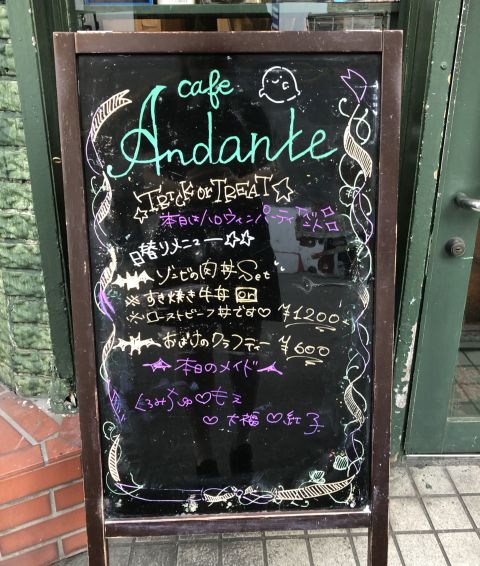 cafe
Andante
TRICK or TREAT
本日はハロウィンパーティ
日替りメニュー☆☆
ゾンビの肉丼 Set
※ すき焼き牛丼 or
※ ローストビーフ丼です♡ ¥1200
おばけのクラフティー ¥600
本日のメイド
くるみ ちゅ♡もえ
♡ 大福 ♡ 紅子